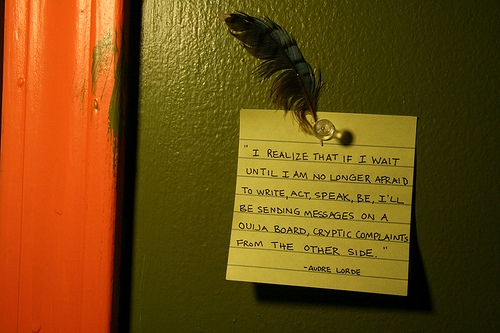 " I REALIZE THAT IF I WAIT
UNTIL I AM NO LONGER AFRAID
TO WRITE, ACT, SPEAK, BE, I'LL
BE SENDING MESSAGES ON A
OUIJA BOARD, CRYPTIC COMPLAINTS
FROM THE OTHER SIDE. "
-AUDRE LORDE